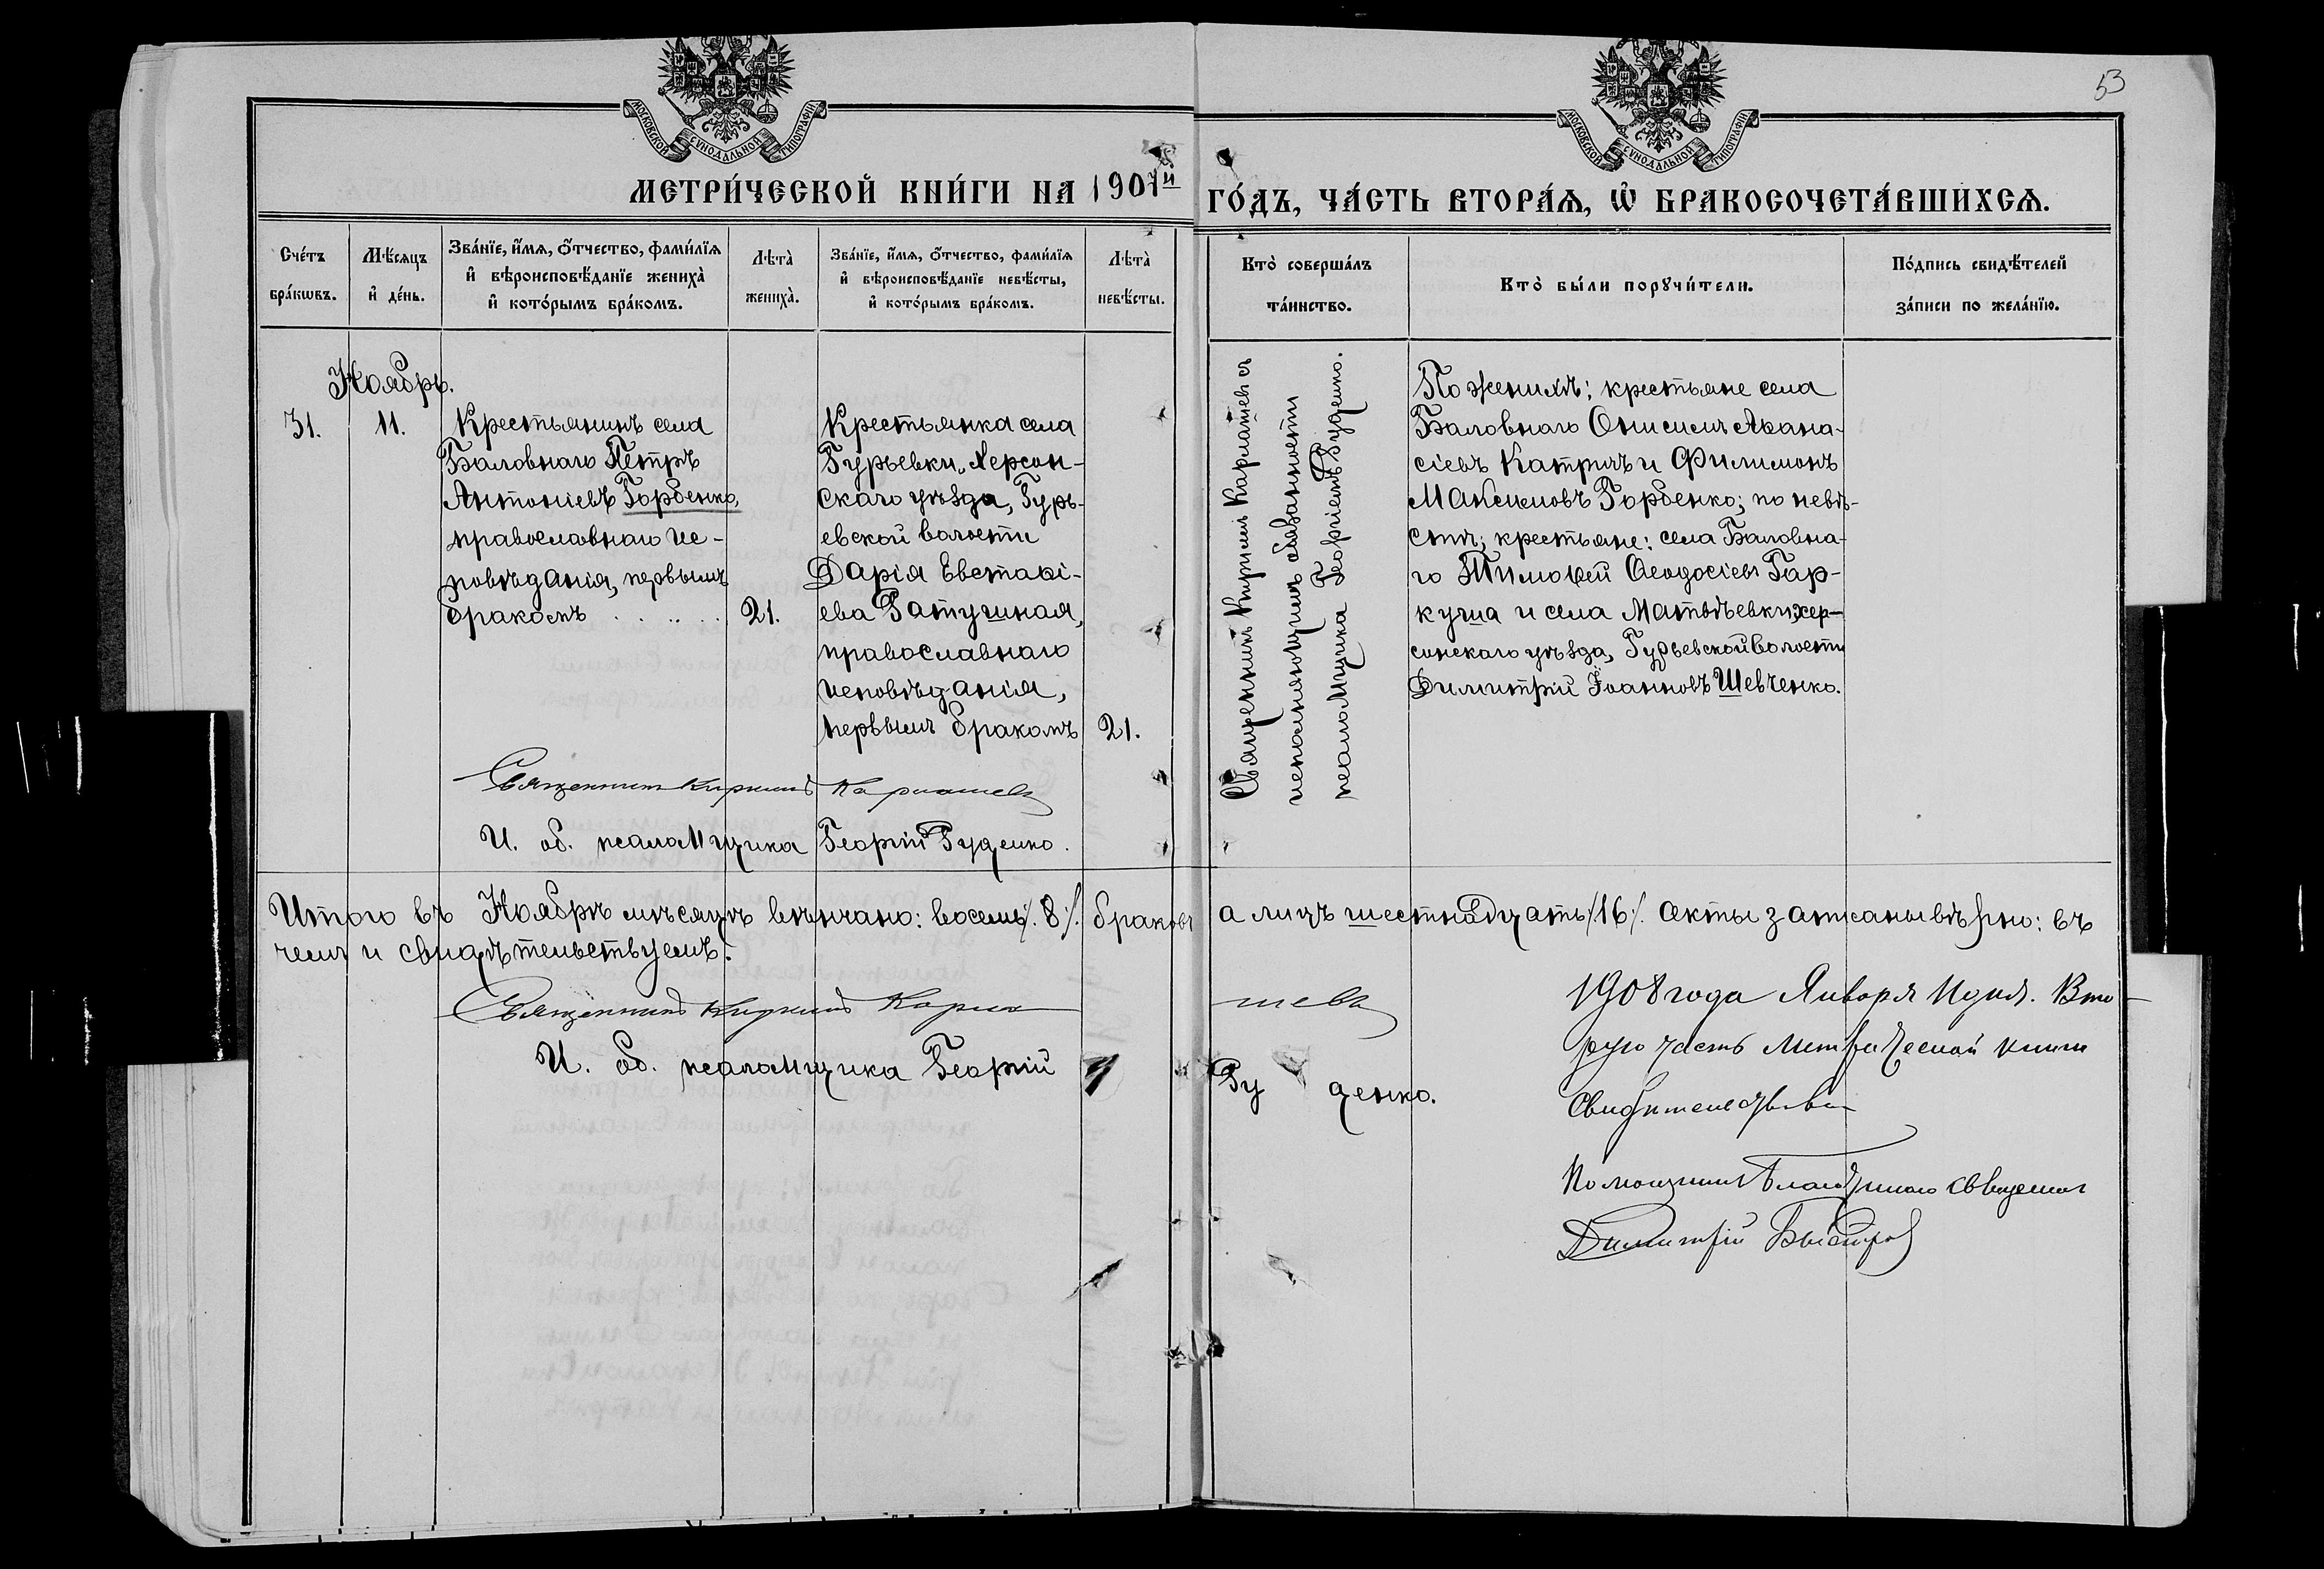 53
МОСКОВСКОЙ СУНОДАЛЬНОЙ ТИПОГРАФІИ
МОСКОВСКОЙ СУНОДАЛЬНОЙ ТИПОГРАФІИ
МЕТРИ́ЧЕСКОЙ КНИ́ГИ НА 1907й ГО́ДЪ, ЧА́СТЬ ВТОРА́Я, Ѡ҆ БРАКОСОЧЕТА́ВШИХСЯ.
Сче́тъ
бра́кѡвъ.
Мѣ́сяцъ
и҆ де́нь.
Зва́нїе, и҆́мя, ѻ҆́тчество, фами́лїя
и҆ вѣроисповѣ́данїе жениха̀
и҆ кото́рымъ бра́комъ.
Лѣта̀
жениха̀.
Зва́нїе, и҆́мя, ѻ҆́тчество, фами́лїя
и҆ вѣроисповѣ́данїе невѣ́сты,
и҆ кото́рымъ бра́комъ.
Лѣта̀
невѣ́сты.
Кто̀ соверша́лъ
та́инство.
Кто̀ бы́ли порꙋчи́тели.
По́дпись свидѣ́телей
за́писи по жела́нїю.
Ноябрь.
31.
11.
Крестьянинъ села
Баловнаго Петръ
Антоніевъ Горбенко,
православнаго ис-
повѣданія, первымъ
бракомъ . . . . .
21.
Крестьянка села
Гурьевки, Херсон-
скаго уѣзда, Гурь-
евской волости
Дарія Евстаѳі-
ева Ратушная,
православнаго
исповѣданія,
первымъ бракомъ
21.
Священникъ Кириллъ Кармашевъ съ
исполняющимъ обязанности
псаломщика Георгіемъ Руденко.
По женихѣ: крестьяне села
Баловнаго Онисимъ Аѳана-
сіевъ Катричъ и Филимонъ
Максимовъ Горбенко; по невѣ-
стѣ; крестьяне: села Баловна-
го Тимоѳей Ѳеодосіевъ Гар-
куша и села Матвѣевки, хер-
сонскаго уѣзда, Гурьевской волости
Димитрій Іоанновъ Шевченко.
Священникъ Кириллъ Кармашевъ
И. об. псаломщика Георгій Руденко.
Итого въ Ноябрѣ мѣсяцѣ вѣнчано: восемь /.8/. браковъ а лицъ шестнадцать /.16/. Акты записаны вѣрно: въ
чемъ и свидѣтельствуемъ.
Священникъ Кириллъ Кармашевъ
И. об. псаломщика Георгій Руденко.
1908 года Января дня. Вто-
рую часть Метрической книги
Свидѣтельствовалъ
Помощникъ Благочиннаго Священникъ
Димитрій Быстров